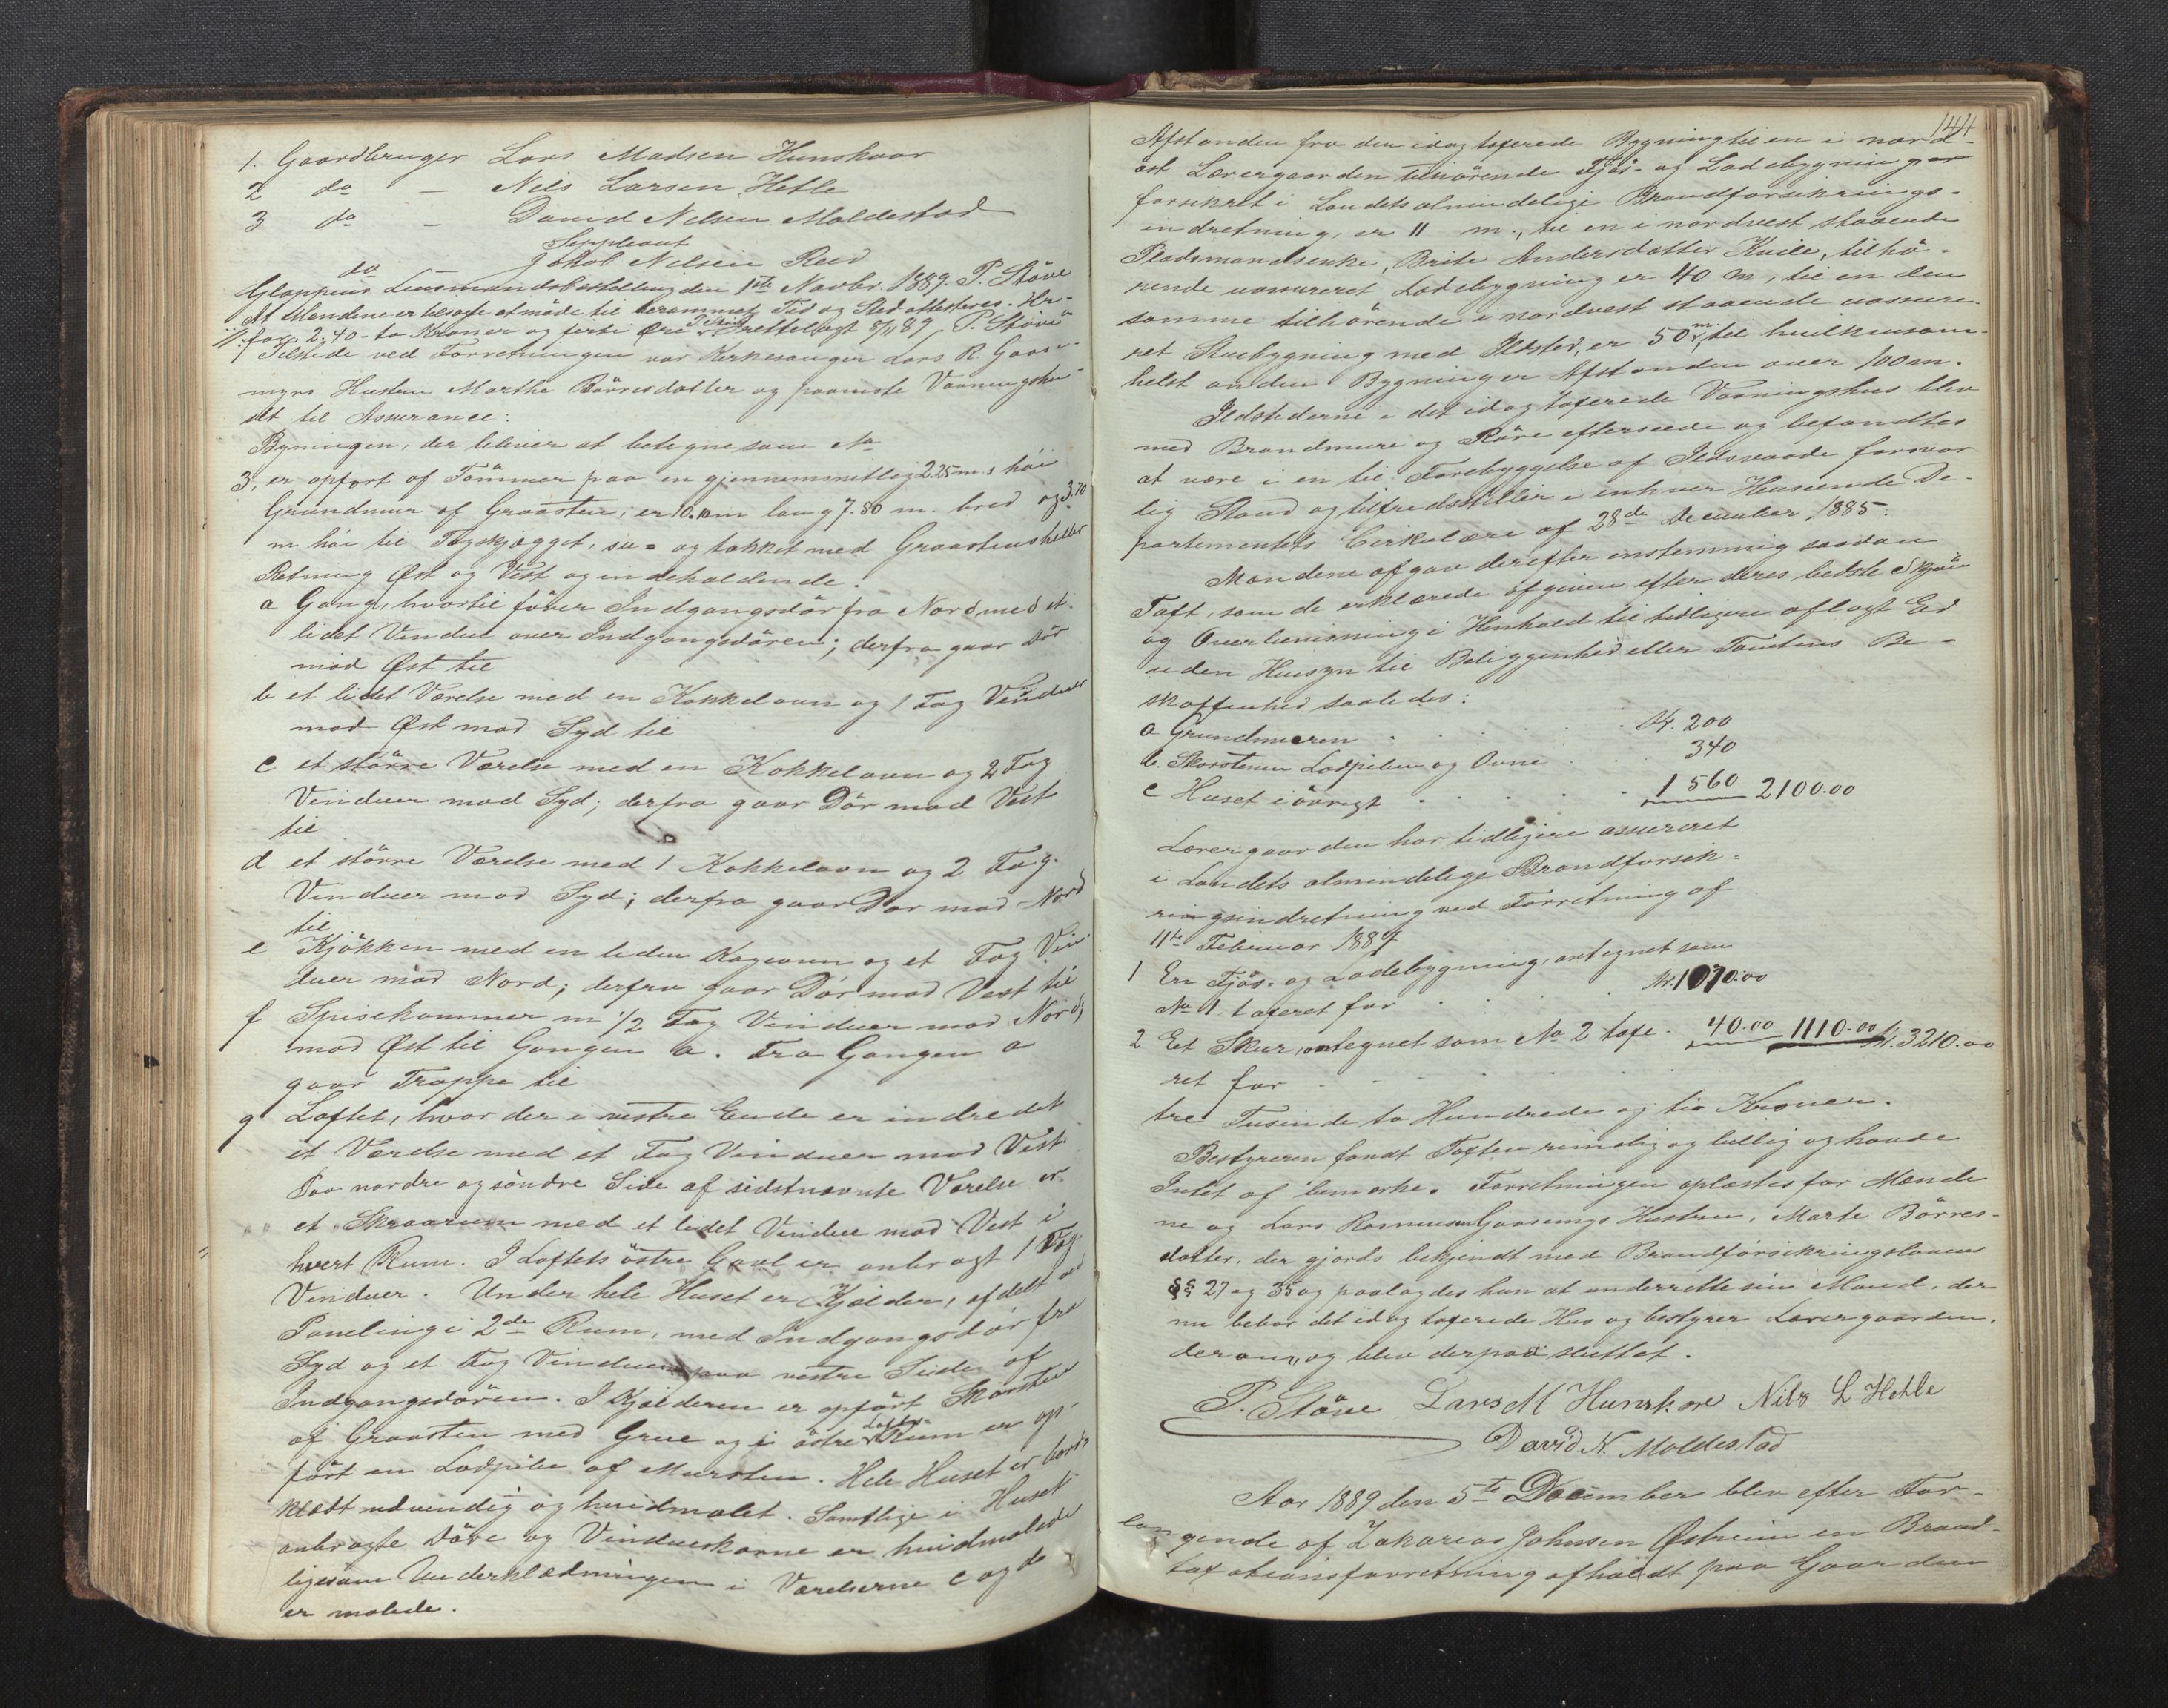 1. Gaardbruger Lars Madsen Hunskaar
2 do – Nils Larsen Hetle
3 do – David Nilsen Moldestad
Suppleant
do Jakob Nilsen Reed
Gloppens Lensmandsbestilling den 1ste Novbr. 1889. P. Støve
At Mændene er tilsagte at møde til berammet Tid og Sted attesteres. Hr-
for 2,40 - to Kroner og førti Øre P. Støve Fretteligt 8/11 89 P. Støve
Tilstede ved Forretningen var Kirkesanger Lars R. Gaase-
myrs Hustru Marthe Børresdatter og paaviste Vaaningshu-
set til Assurance:
Bygningen, der bliver at betegne som No
3, er opført af Tømmer paa en gjennemsnitlig 2.25 m. høi
Grundmur af Graasten; er 10.10 m lang 7.80 m. bred og 3.70
m høi til Tagskjægget, su- og tækket med Graastensheller
Retning Øst og Vest og indeholdende:
a Gang, hvortil fører Indgangsdør fra Nord, med et
lidet Vindue over Indgangsdøren; derfra gaar Dør
mod Øst til
b et lidet Værelse med en Kakkelovn og 1 Fag Vinduer
mod Øst mod Syd til
c et større Værelse med en Kakkelovn og 2 Fag
Vinduer mod Syd; derfra gaar Dør mod Vest
til
d et større Værelse med 1 Kakkelovn og 2 Fag
Vinduer mod Syd; derfra gaar Dør mod Nord
til
e Kjøkken med en liden Kogeovn og et Fag Vin-
duer mod Nord; derfra gaar Dør mod Vest til
f Spisekammer m 1/2 Fag Vinduer mod Nord;
mod Øst til Gangen a. Fra Gangen a
gaar Trappe til
g Loftet, hvor der i vestre Ende er indredet
et Værelse med et Fag Vinduer mod Vest
Paa nordre og søndre Side af sidstnævnte Værelse er
et Skraarum med et lidet Vindue mod Vest i
hvert Rum. I Loftets østre Gavl er anbragt 1 Fag
Vinduer. Under hele Huset er Kjælder, afdelt ved
Paneling i 2de Rum, med Indgangsdør fra
Syd og et Fag Vinduer paa vestre Side af
Indgangsdøren. I Kjælderen er opført Skorsten
af Graasten med Grue og i østre Lofts- Rum er op-
ført en Lodpibe af Mursten. Hele Huset er bord-
klædt udvendig og hvidmalet. Samtlige i Huset
anbragte Døre og Vindueskarme er hvidmalede
ligesom Underklædningen i Værelserne c og d
er malede.
144
Afstanden fra den idag taxerede Bygning til en i nord-
øst Lærergaarden tilhørende Fjøs- og Ladebygning er
forsikret i Landets almindelige Brandforsikrings-
indretning, er 11 m., til en i nordvest staaende
Pladsmandsenke, Brite Andersdatter Kvile, tilhø-
rende uassureret Ladebygning er 40 m., til en den
samme tilhørende i nordvest staaende uassure-
ret Stuebygning med Ildsted, er 50 m., til hvilkensom-
helst anden Bygning er Afstanden over 100 m.
Ildstederne i det idag taxerede Vaaningshus blev
med Brandmure og Røre efterseede og befandtes
at være i en til Forebyggelse af Ildsvaade forsvar-
lig Stand og tilfredsstiller i enhver Henseende De-
partementets Cirkulære af 28de December 1885.
Mændene afgav derefter enstemmig saadan
Taxt, som de erklærede afgiven efter deres bedste Skjøn
og Overbevisning i Henhold til tidligere aflagt Ed
uden Hensyn til Beliggenhed eller Tomtens Be-
skaffenhed saaledes:
a Grundmuren . . . Kr. 200
b. Skorstenen Lodpiben og Ovne . . 340
c Huset iøvrigt . . . . 1560 2100.00
Lærergaarden har tidligere assureret
i Landets almindelige Brandforsik-
ringsindretning ved Forretning af
11te Februar 1887
1 En Fjøs- og Ladebygning, antegnet som
No 1 taxeret for . . . Kr. 1070.00
2 Et Skur, antegnet som No 2 taxe- 40.00 1110.00 Kr. 3210.00
ret for . . . .
tre Tusinde to Hundrede og tio Kroner.
Bestyreren fandt Taxten rimelig og billig og havde
Intet at bemerke. Forretningen oplæstes for Mænde
ne og Lars Rasmussen Gaasemyrs Hustru, Marte Børres-
datter, der gjords bekjendt med Brandforsikringslovens
§§ 27 og 35 og paalagdes hun at underrette sin Mand, der
nu bebor det idag taxerede Hus og bestyrer Lærergaarden,
derom, og blev derpaa sluttet.
P. Støve Lars M Hunskore Nils L Hetle
David N. Moldestad
Aar 1889 den 5te December blev efter For-
langende af Zakarias Johnsen Østrem en Brand-
taxationsforretning afholdt paa Gaarden